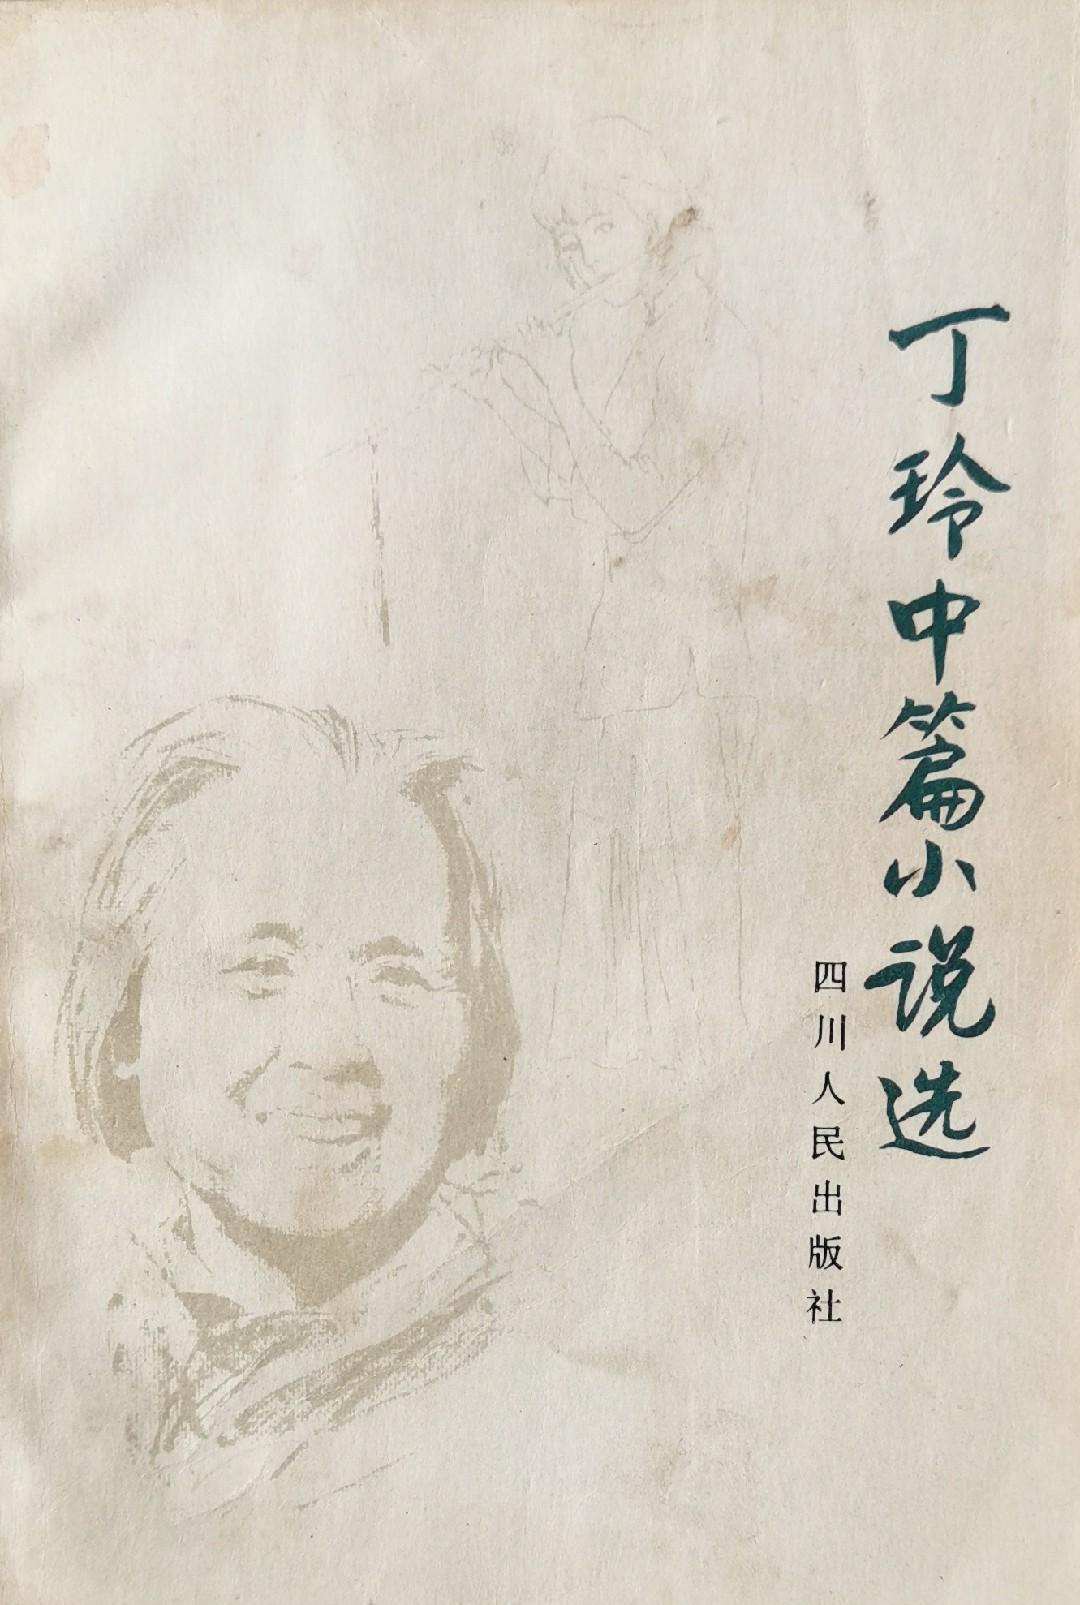 丁玲中篇小说选
四川人民出版社